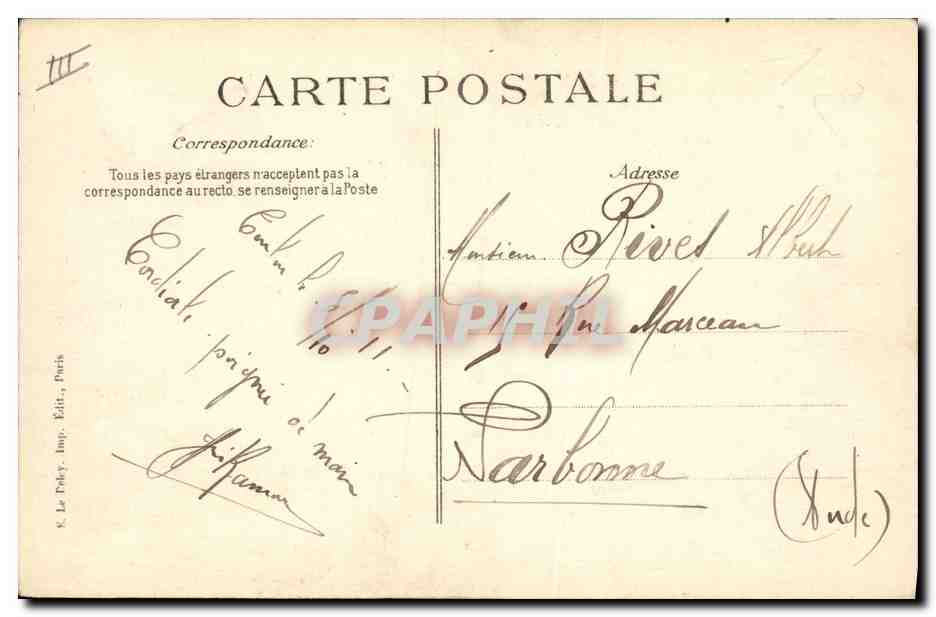 III
CARTE POSTALE
Correspondance:
Tous les pays étrangers n'acceptent pas la
correspondance au recto, se renseigner à la Poste
le 5/10/11
Cordiale
poignée de main
Adresse
Monsieur Rives Albert
15 Rue Marceau
Narbonne
(Aude)
E. Le Deley, Imp. Édit., Paris
CPAPHIL